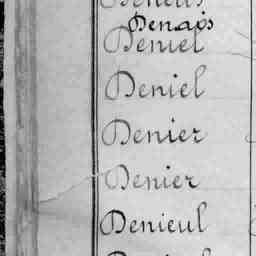 Denais
Deniel
Deniel
Denier
Denier
Denieul